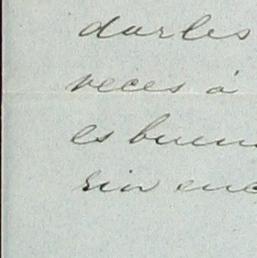 darles
veces á
es buen
sin enc